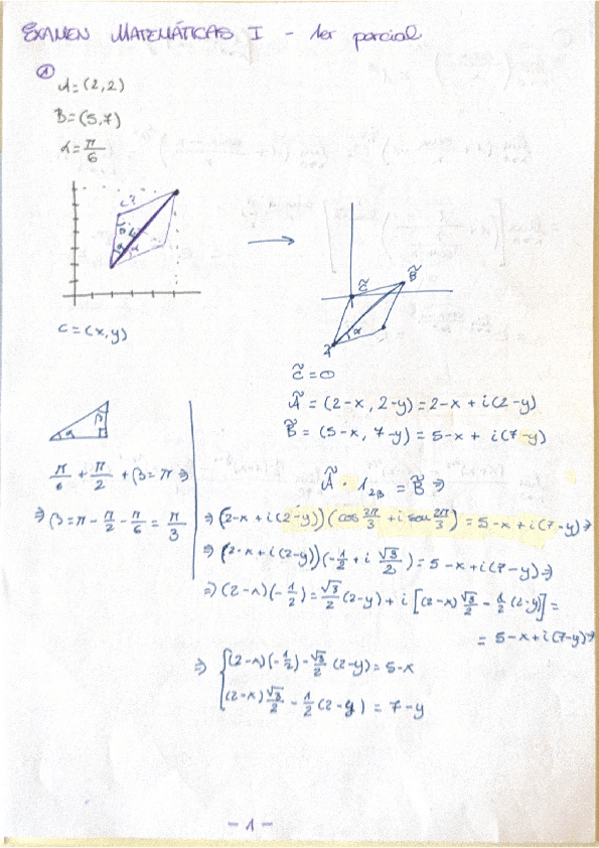 EXAMEN MATEMÁTICAS I - 1er parcial
①
A = (2,2)
B = (5,7)
α = π/6
C?
α
α
C = (x,y)
C̃
B̃
α
Ã
C̃ = 0
Ã = (2-x, 2-y) = 2-x + i(2-y)
B̃ = (5-x, 7-y) = 5-x + i(7-y)
α
β
π/6 + π/2 + β = π ⇒
⇒ β = π - π/2 - π/6 = π/3
Ã · 1_2β = B̃ ⇒
⇒ (2-x + i(2-y))(cos 2π/3 + i sen 2π/3) = 5-x + i(7-y) ⇒
⇒ (2-x + i(2-y))(-1/2 + i √3/2) = 5-x + i(7-y) ⇒
⇒ (2-x)(-1/2) = √3/2 (2-y) + i [(2-x) √3/2 - 1/2 (2-y)] =
= 5-x + i(7-y) ⇒
⇒ { (2-x)(-1/2) - √3/2 (2-y) = 5-x
(2-x) √3/2 - 1/2 (2-y) = 7-y
- 1 -